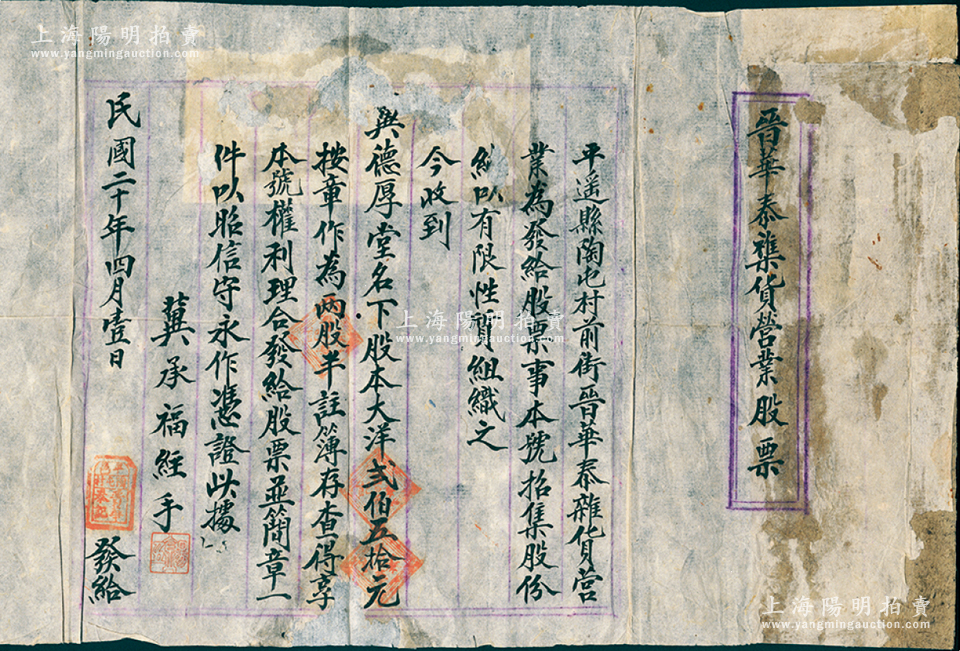 晋華泰襍貨營業股票
平遥縣陶屯村前街晋華泰雜貨營
業為發給股票事本號招集股份
純以有限性質組織之
今收到
與德厚堂名下股本大洋弍佰五拾元
按章作為兩股半註簿存查得享
本號權利理合發給股票並簡章一
件以昭信守永作憑證此據
冀承福經手
民國二十年四月壹日
發給
上海陽明拍賣
www.yangmingauction.com
上海陽明拍賣
www.yangmingauction.com
上海陽明拍賣
www.yangmingauction.com